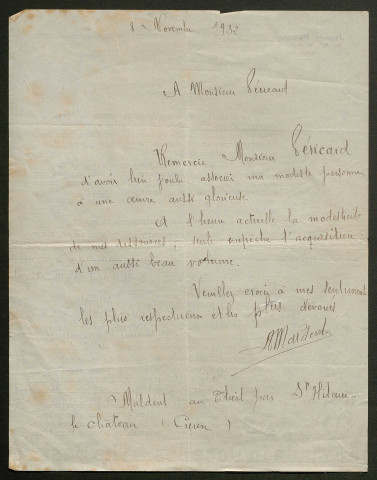 8 Novembre 1932
A Monsieur Péricard
Remercie Monsieur Péricard
d'avoir bien voulu associer ma modeste personne
à une œuvre aussi glorieuse
A l'heure actuelle la modesticité
de mes ressources, seule empêche l'acquisition
d'un aussi beau volume.
Veuillez croire à mes sentiments
les plus respectueux et les plus dévoués
AMaldent
Maldent au Theil par St Hilaire
le château (Creuse)